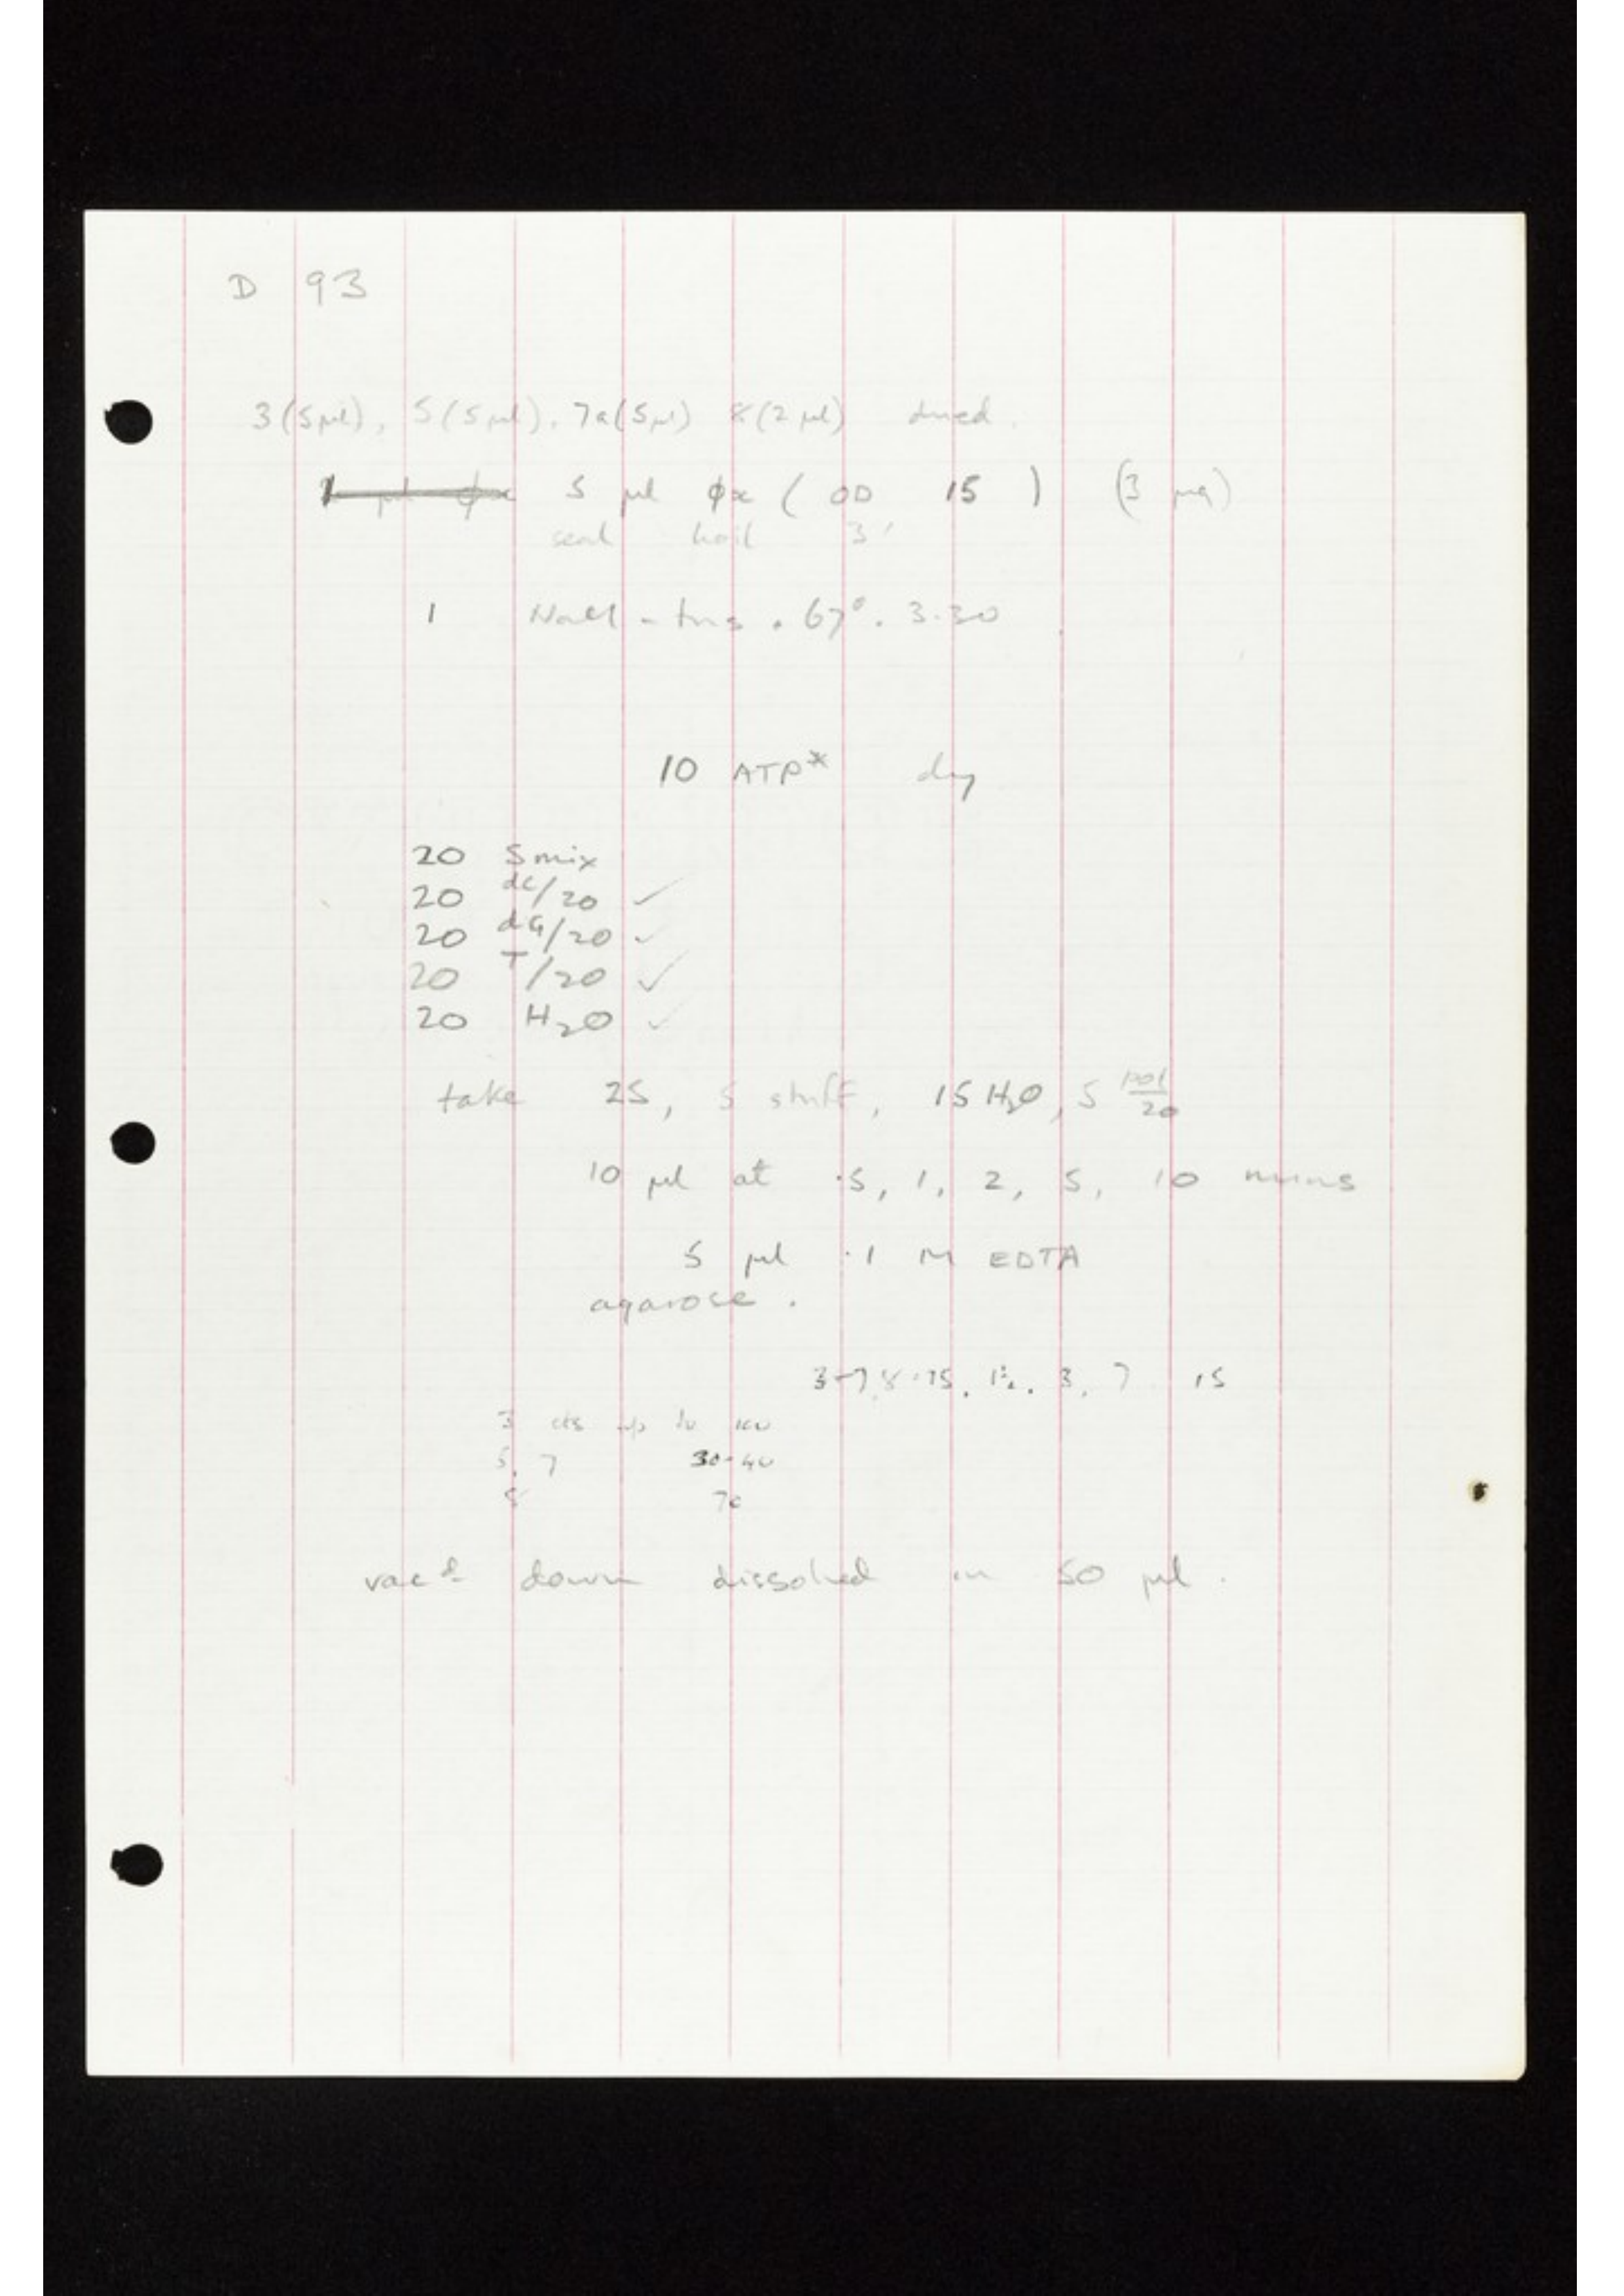 D 93
3 (5 µl), 5 (5 µl), 7a (5 µl) 8 (2 µl) dried.
1 µl φx 5 µl φx ( OD 15 ) (3 µg)
seal boil 3'
1 NaCl - tris . 67°. 3.30
10 ATP* dry
20 S mix
20 dC/20 ✓
20 dG/20 ✓
20 T/20 ✓
20 H2O ✓
take 25, 5 stuff, 15 H2O, 5 pol/20
10 µl at .5, 1, 2, 5, 10 mins
5 µl .1 M EDTA
agarose .
3, 7 15
3 cts up to 100
5, 7 30-40
8 70
vacd down dissolved in 50 µl .